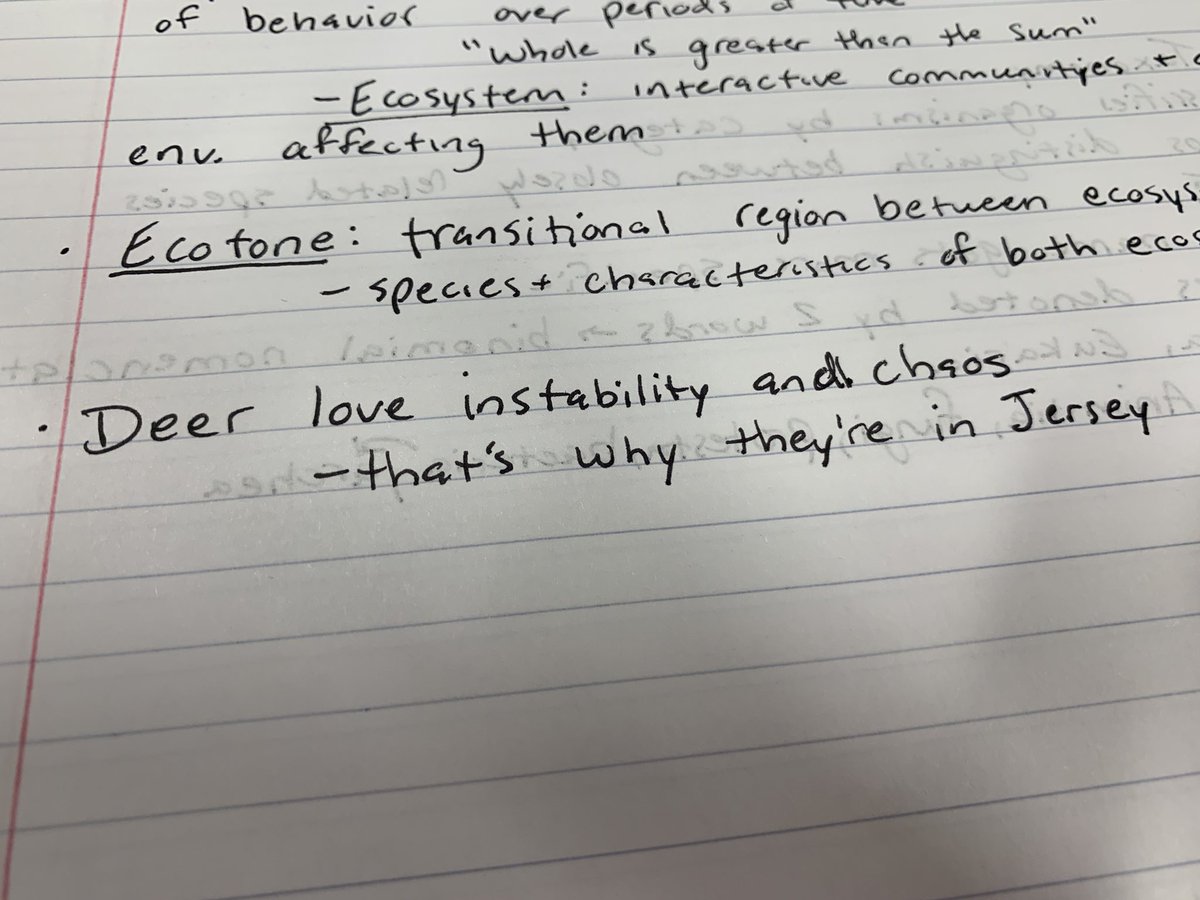 of behavior over periods of
"Whole is greater than the sum"
- Ecosystem: interactive communities +
env. affecting them
· Ecotone: transitional region between ecosys
- species + characteristics of both ecos
· Deer love instability and chaos
- that's why they're in Jersey